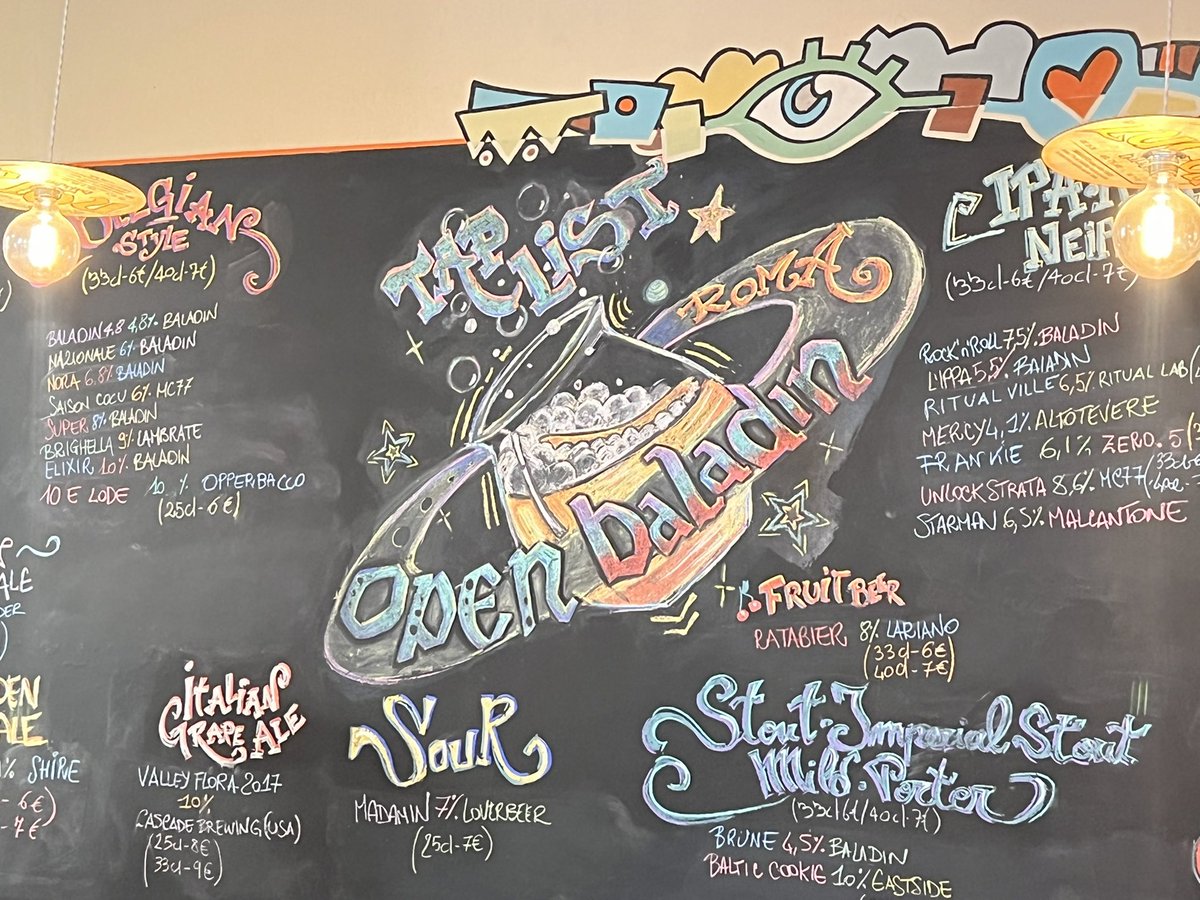 TAP LIST
ROMA
OPEN Baladin
BELGIAN
STYLE
(33cl-6€/40cl-7€)
BALADIN 4,8 4,8% BALADIN
NAZIONALE 6% BALADIN
NORA 6.8% BALADIN
SAISON COCU 6% MC77
SUPER 8% BALADIN
BRIGHELLA 9% LAMBRATE
ELIXIR 10% BALADIN
10 E LODE 10 % OPPERBACCO
(25cl-6€)
IPA
NEIP
(33cl-6€/40cl-7€)
ROCK'n'ROLL 7,5% BALADIN
L'IPPA 5,5%
RITUAL VILLE 6,5% RITUAL LAB
MERCY 4,1% ALTOTEVERE
FRANKIE 6,1% ZERO.5
UNLOCK STRATA 8,6% MC77
STARMAN 6,5% MALCANTONE
FRUIT BEER
RATABIER 8% LARIANO
(33cl-6€)
(40cl-7€)
ALE
DEN
ALE
% SHIRE
- 6€)
- 7€
ITALIAN
GRAPE ALE
VALLEY FLORA 2017
10%
CASCADE BREWING (USA)
(25cl-8€)
(33cl-9€)
SOUR
MADAMIN 7% LOVERBEER
(25cl-7€)
Stout·Imperial Stout
Mild·Porter
(33cl6€/40cl·7€)
BRUNE 4,5% BALADIN
BALTIC COOKIE 10% EASTSIDE